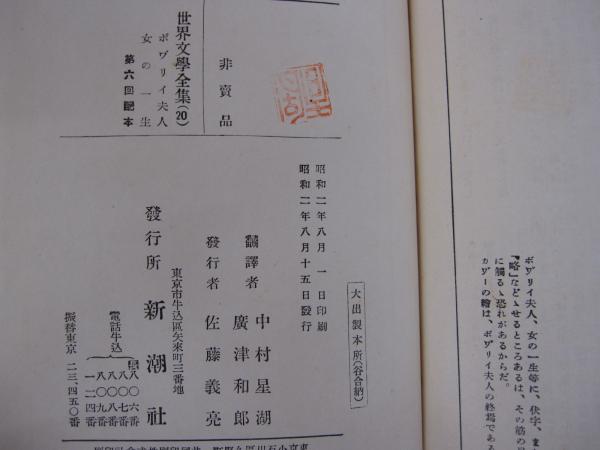 ボヷリイ夫人、女の一生等に、伏字、ま
『略』などゝせるところあるは、その筋の
に觸るゝ恐れがあるからだ。
カヷーの繪は、ボヷリイ夫人の終場であ
大出製本所(谷合納)
昭和二年八月一日印刷
昭和二年八月十五日發行
飜譯者
中村星湖
廣津和郎
發行者 佐藤義亮
東京市牛込區矢來町三番地
發行所 新潮社
電話牛込
八〇六番
八〇七番
八〇八番
八〇九番
一二四番
振替東京 二三、四五〇番
非賣品
世界文學全集(20)
ボヷリイ夫人
女の一生
第六回配本